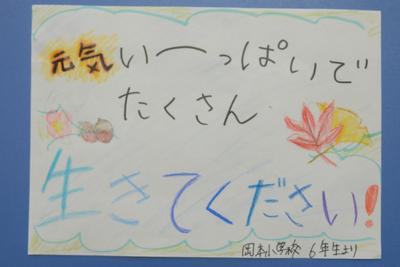 元気い一っぱいで
たくさん
生きてください!
岡本小学校 6年生より